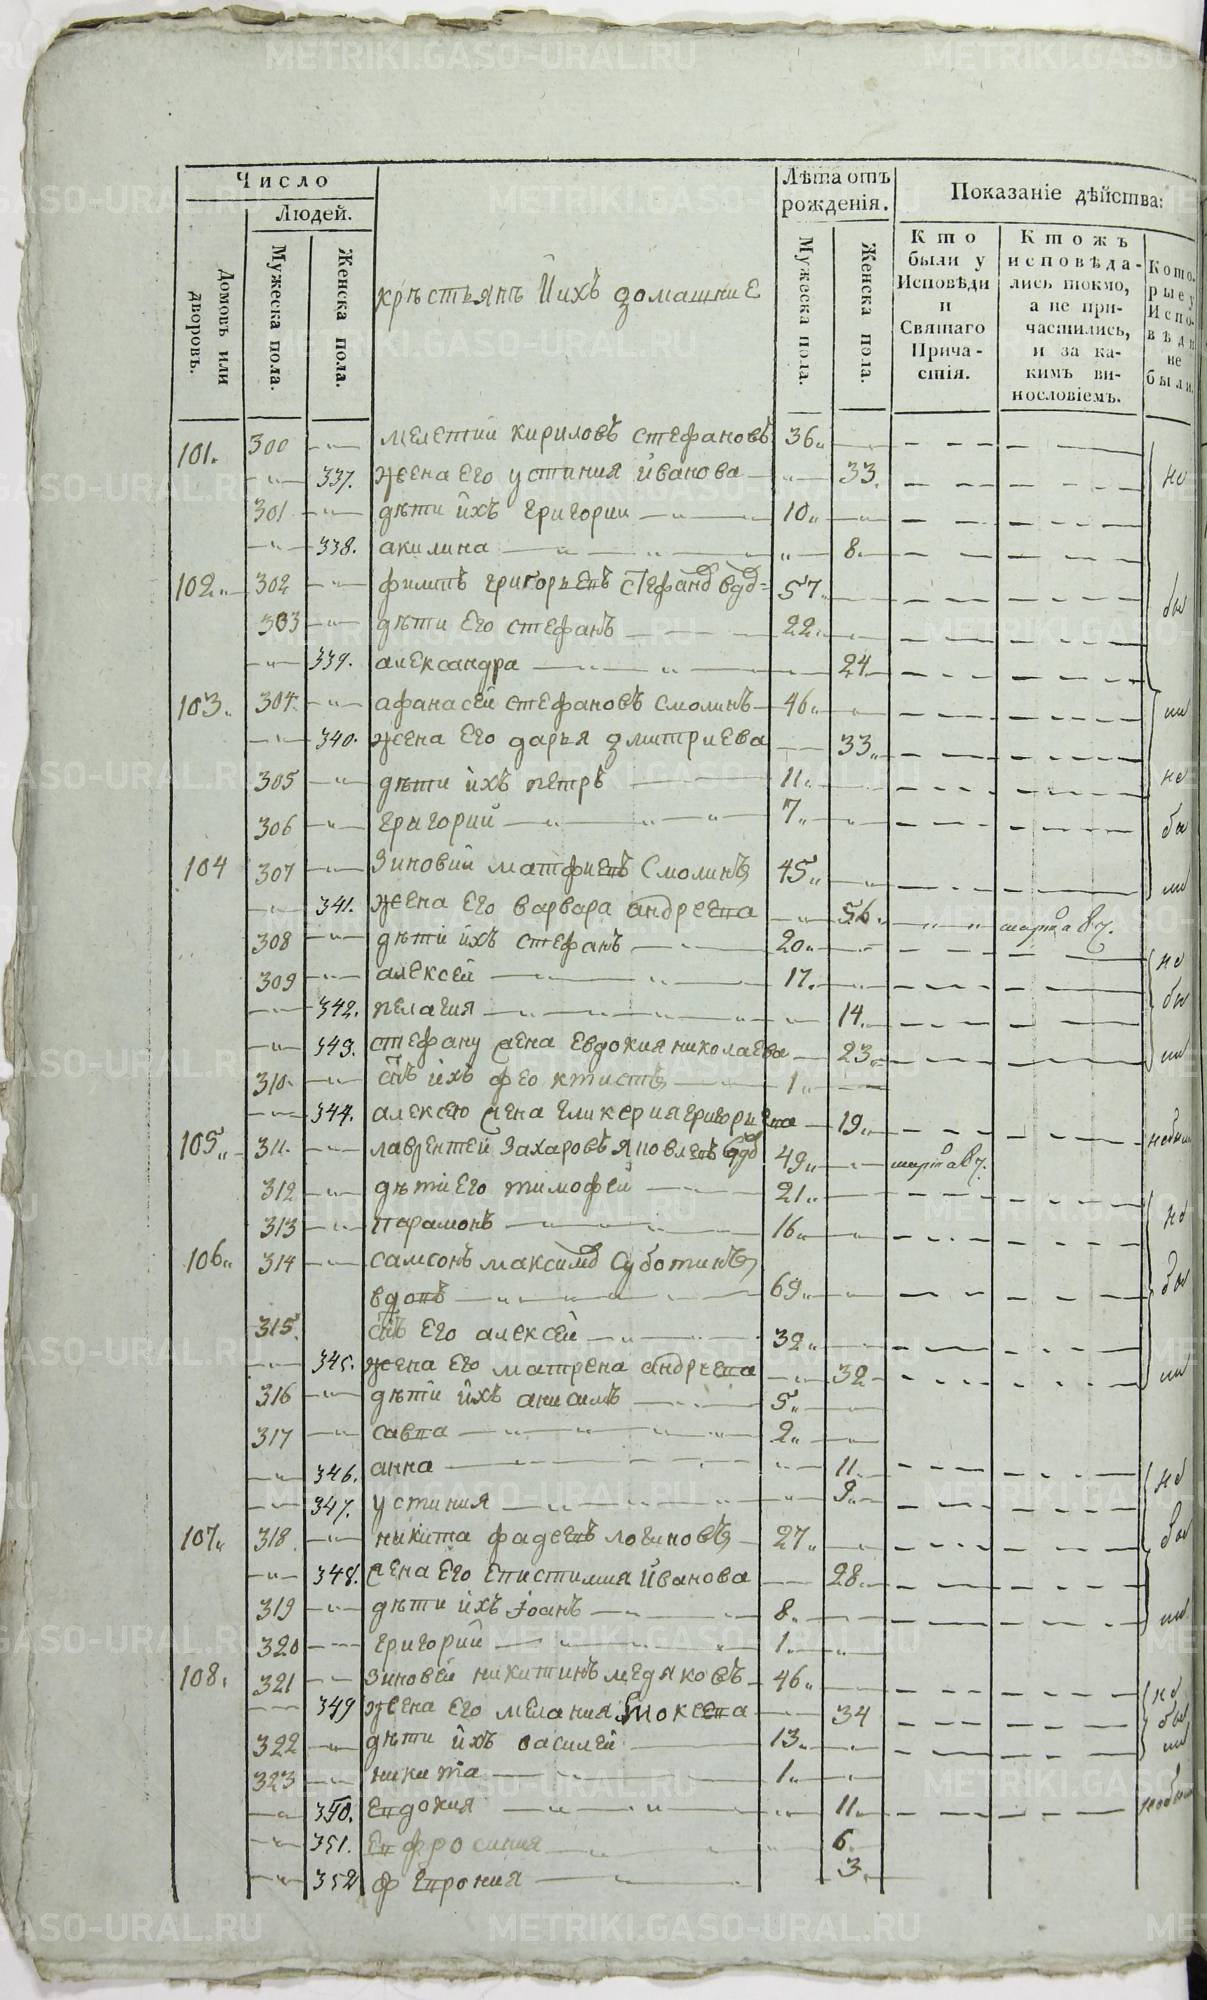 Число
Людей.
Домовъ или дворовъ.
Мужеска пола.
Женска пола.
крѣстьянъ Ӥихъ домашние
Лѣта отъ рожденія.
Мужеска пола.
Женска пола.
Показаніе дѣйства:
Кто были у Исповѣди и Святаго Причастія.
Ктожъ исповѣдались токмо, а не причастились, и за какимъ винословіемъ.
Которые у Исповѣди не были.
101. 300 мелетии кириловъ стефановъ 36
337. жена его устиния Иванова 33.
301 дѣти ихъ григории 10
338. акилина 8
102 302 филипъ григорьевъ стефанов вдов 57
303 дѣти его стефанъ 22
339. александра 24
103. 304 афанасей стефановъ смолинъ 46
340. жена его дарья дмитриева 33
305 дѣти ихъ петръ 11
306 григорий 7
104 307 Зиновий матфиевъ Смолинъ 45
341. жена его варвара андреева 56 марта 8 ч.
308 дѣти ихъ стефанъ 20
309 алексей 17
342. пелагия 14
343. стефану жена евдокия николаева 23
310 снъ ихъ феоктистъ 1
344. алексею жена гликерия григориева 19
105 311. лаврентей захаровъ яковлевъ вдов 49 марта 8 ч.
312 дѣти его тимофей 21
313 парамонъ 16
106 314 самсонъ максимов Суботинъ
вдовъ 69
315 снъ его алексей 32
345. жена его матрена андреева 32
316 дѣти ихъ анисимъ 5
317 савва 2
346. анна 11
347. устиния 9
107 318 никита фадеевъ логиновъ 27
348. жена его епистимия Иванова 28
319 дѣти ихъ іоанъ 8
320 григорий 1
108. 321 Зиновей никитинъ медяковъ 46
349 жена его мелания мокеева 34
322 дѣти ихъ василей 13
323 никита 1
350. евдокия 11
351. евфросиния 6
352 феврония 3
не
были
не
были
не
были
небыли
не
были
не
были
не
были
небыли
METRIKI.GASO-URAL.RU